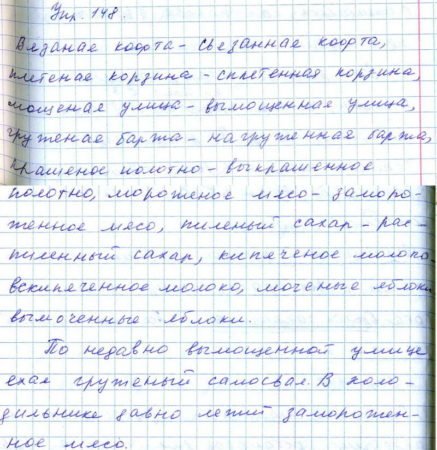 Упр. 148.
Вязаная кофта - связанная кофта,
плетеная корзина - сплетенная корзина,
мощеная улица - вымощенная улица,
груженая баржа - нагруженная баржа,
крашеное полотно - выкрашенное
полотно, мороженое мясо - заморо-
женное мясо, пиленый сахар - рас-
пиленный сахар, кипяченое молоко-
вскипяченное молоко, моченые яблоки
вымоченные яблоки.
По недавно вымощенной улице
ехал груженый самосвал. В холо-
дильнике давно лежит заморожен-
ное мясо.